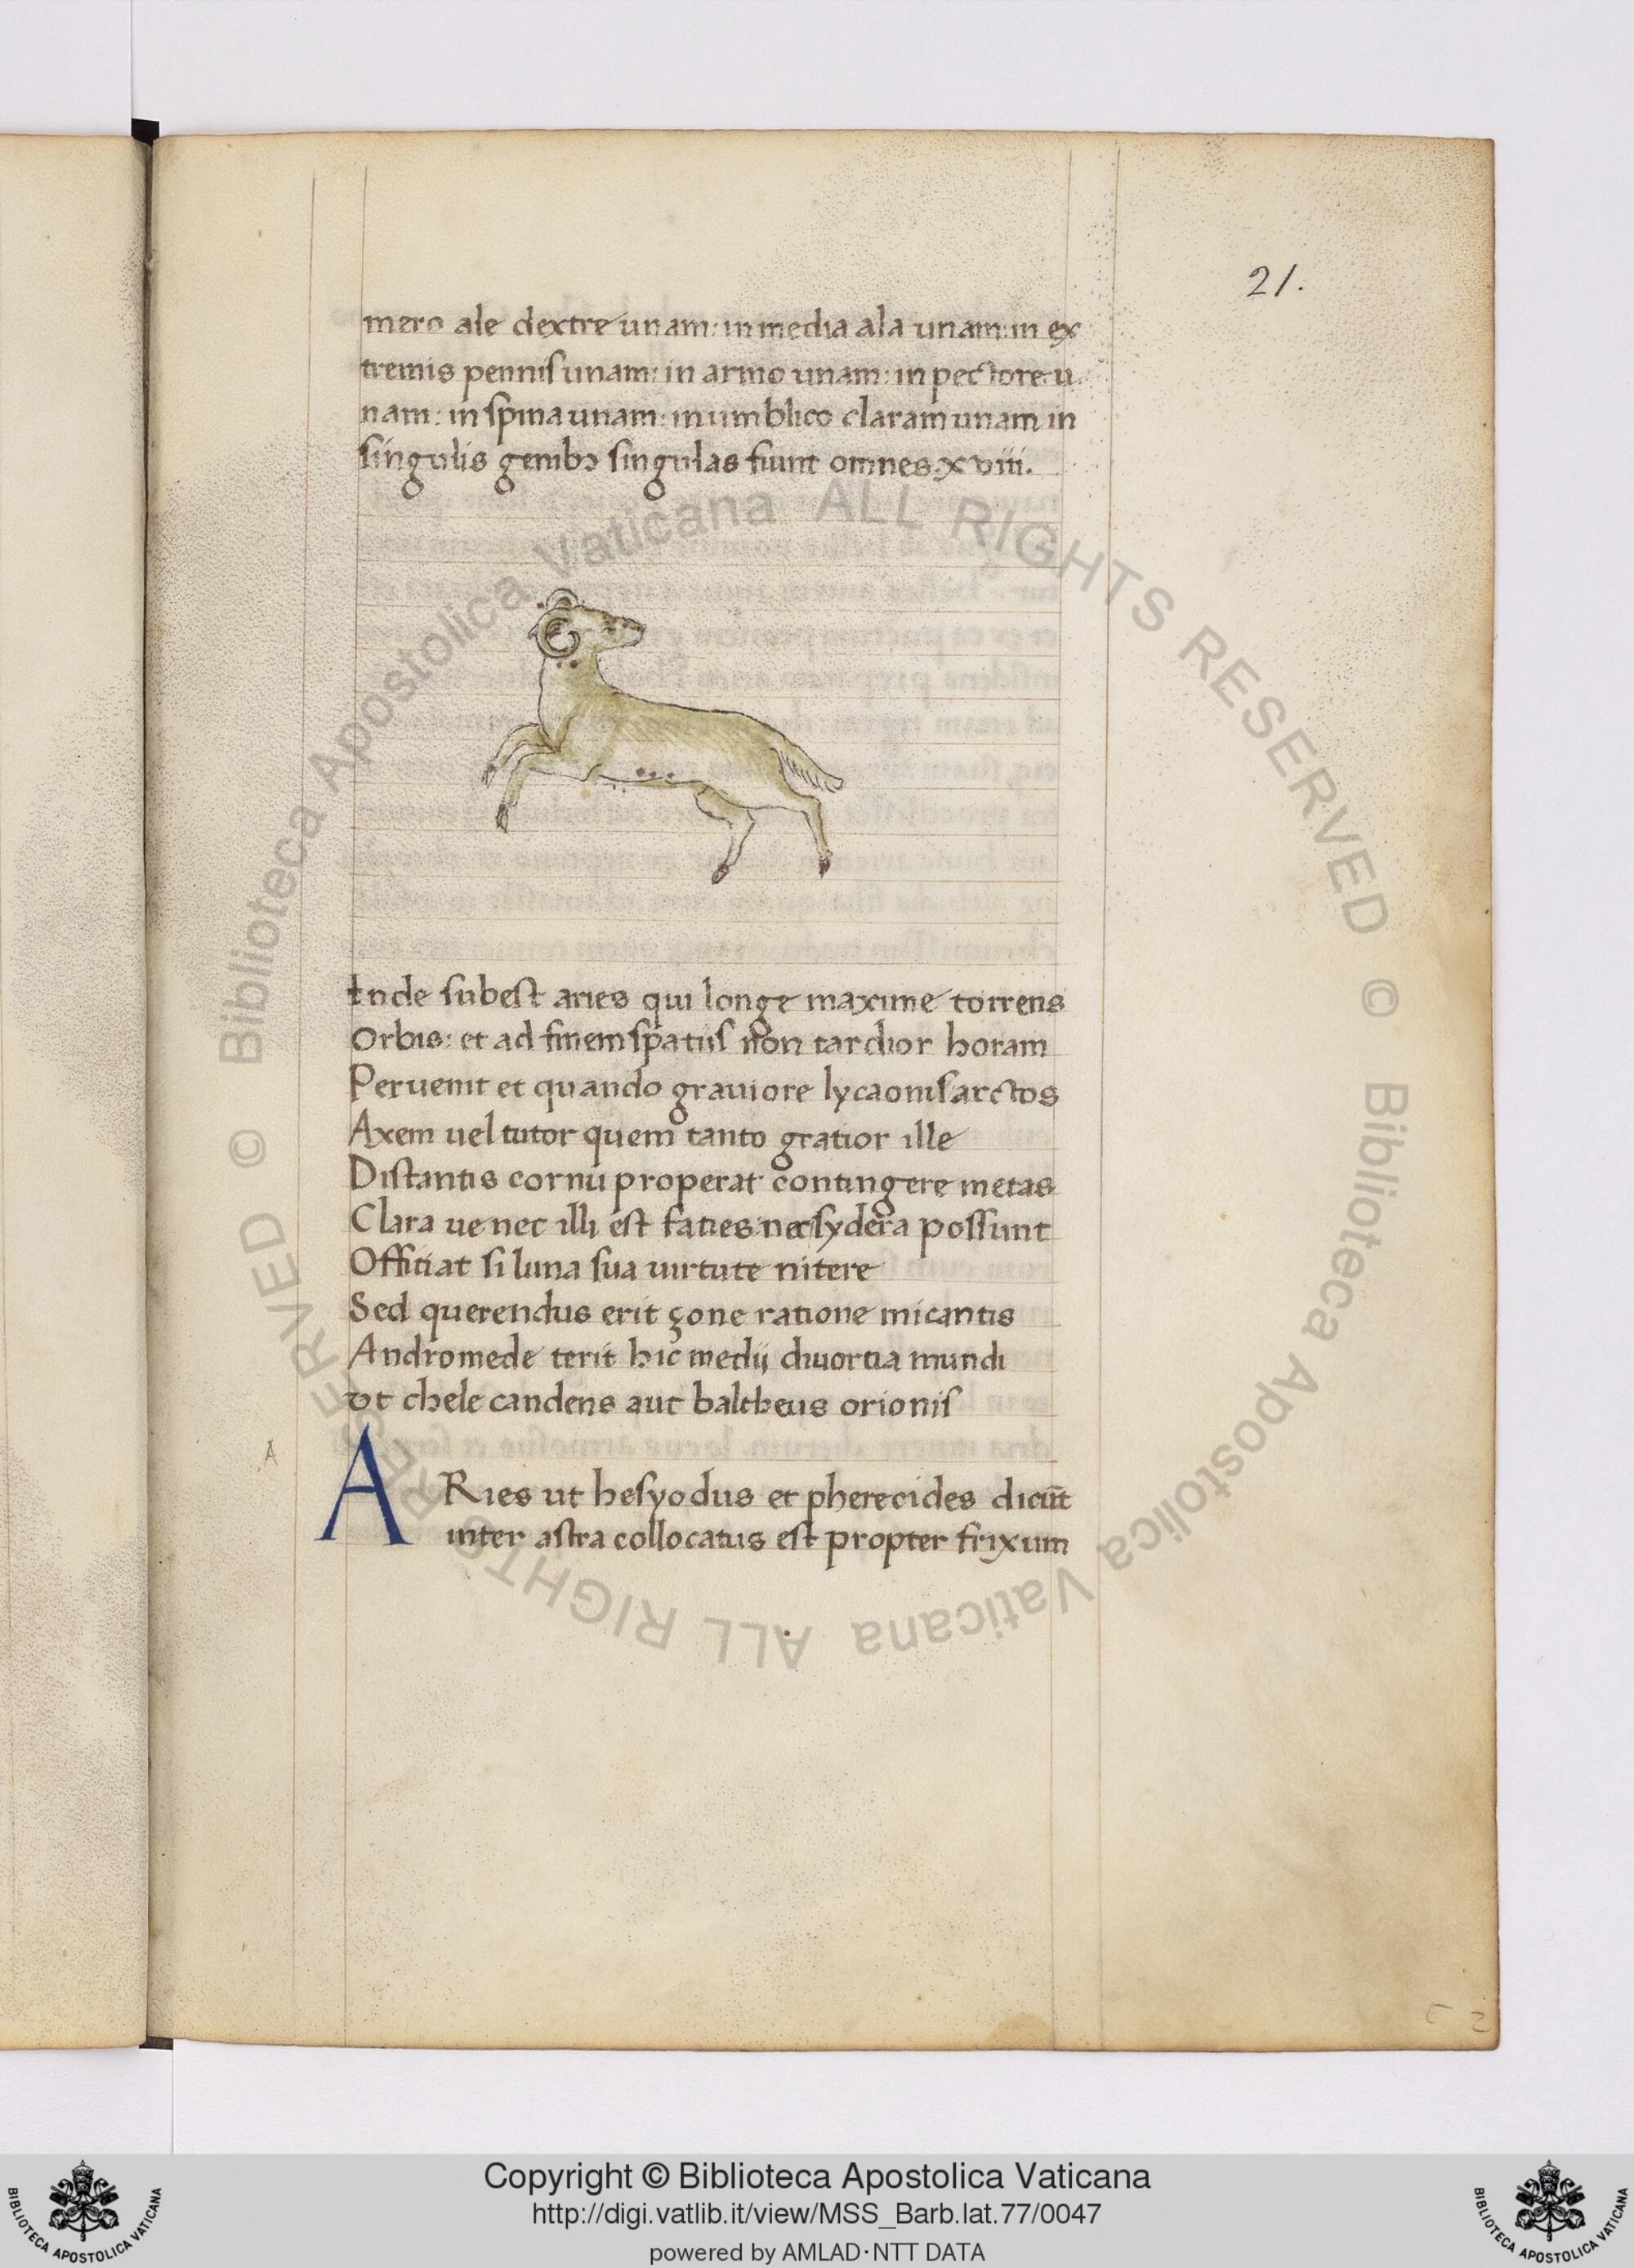 21.
mero ale dextre unam: in media ala unam: in ex
tremis pennis unam: in armo unam: in pectore: u
nam: in spina unam: in umblico claram unam in
singulis genibꝫ singulas fiunt omnes xviii.
Inde subest aries qui longe maxime torrens
Orbis: et ad finem spatiis non tardior horam
Peruenit et quando grauiore lycaonis arctos
Axem uel tutor quem tanto gratior ille
Distantis cornu properat contingere metas
Clara ue nec illi est faties nec sydera possunt
Offitiat si luna sua uirtute nitere
Sed querendus erit çone ratione micantis
Andromede terit hic medij diuortia mundi
vt chele candens aut baltheus orionis
A
ARies ut hesyodus et pherecides dicūt
inter astra collocatus est propter frixum
© Biblioteca Apostolica Vaticana ALL RIGHTS RESERVED © Biblioteca Apostolica Vaticana ALL RIGHTS RESERVED
Copyright © Biblioteca Apostolica Vaticana
http://digi.vatlib.it/view/MSS_Barb.lat.77/0047
powered by AMLAD·NTT DATA
BIBLIOTECA APOSTOLICA VATICANA
BIBLIOTECA APOSTOLICA VATICANA